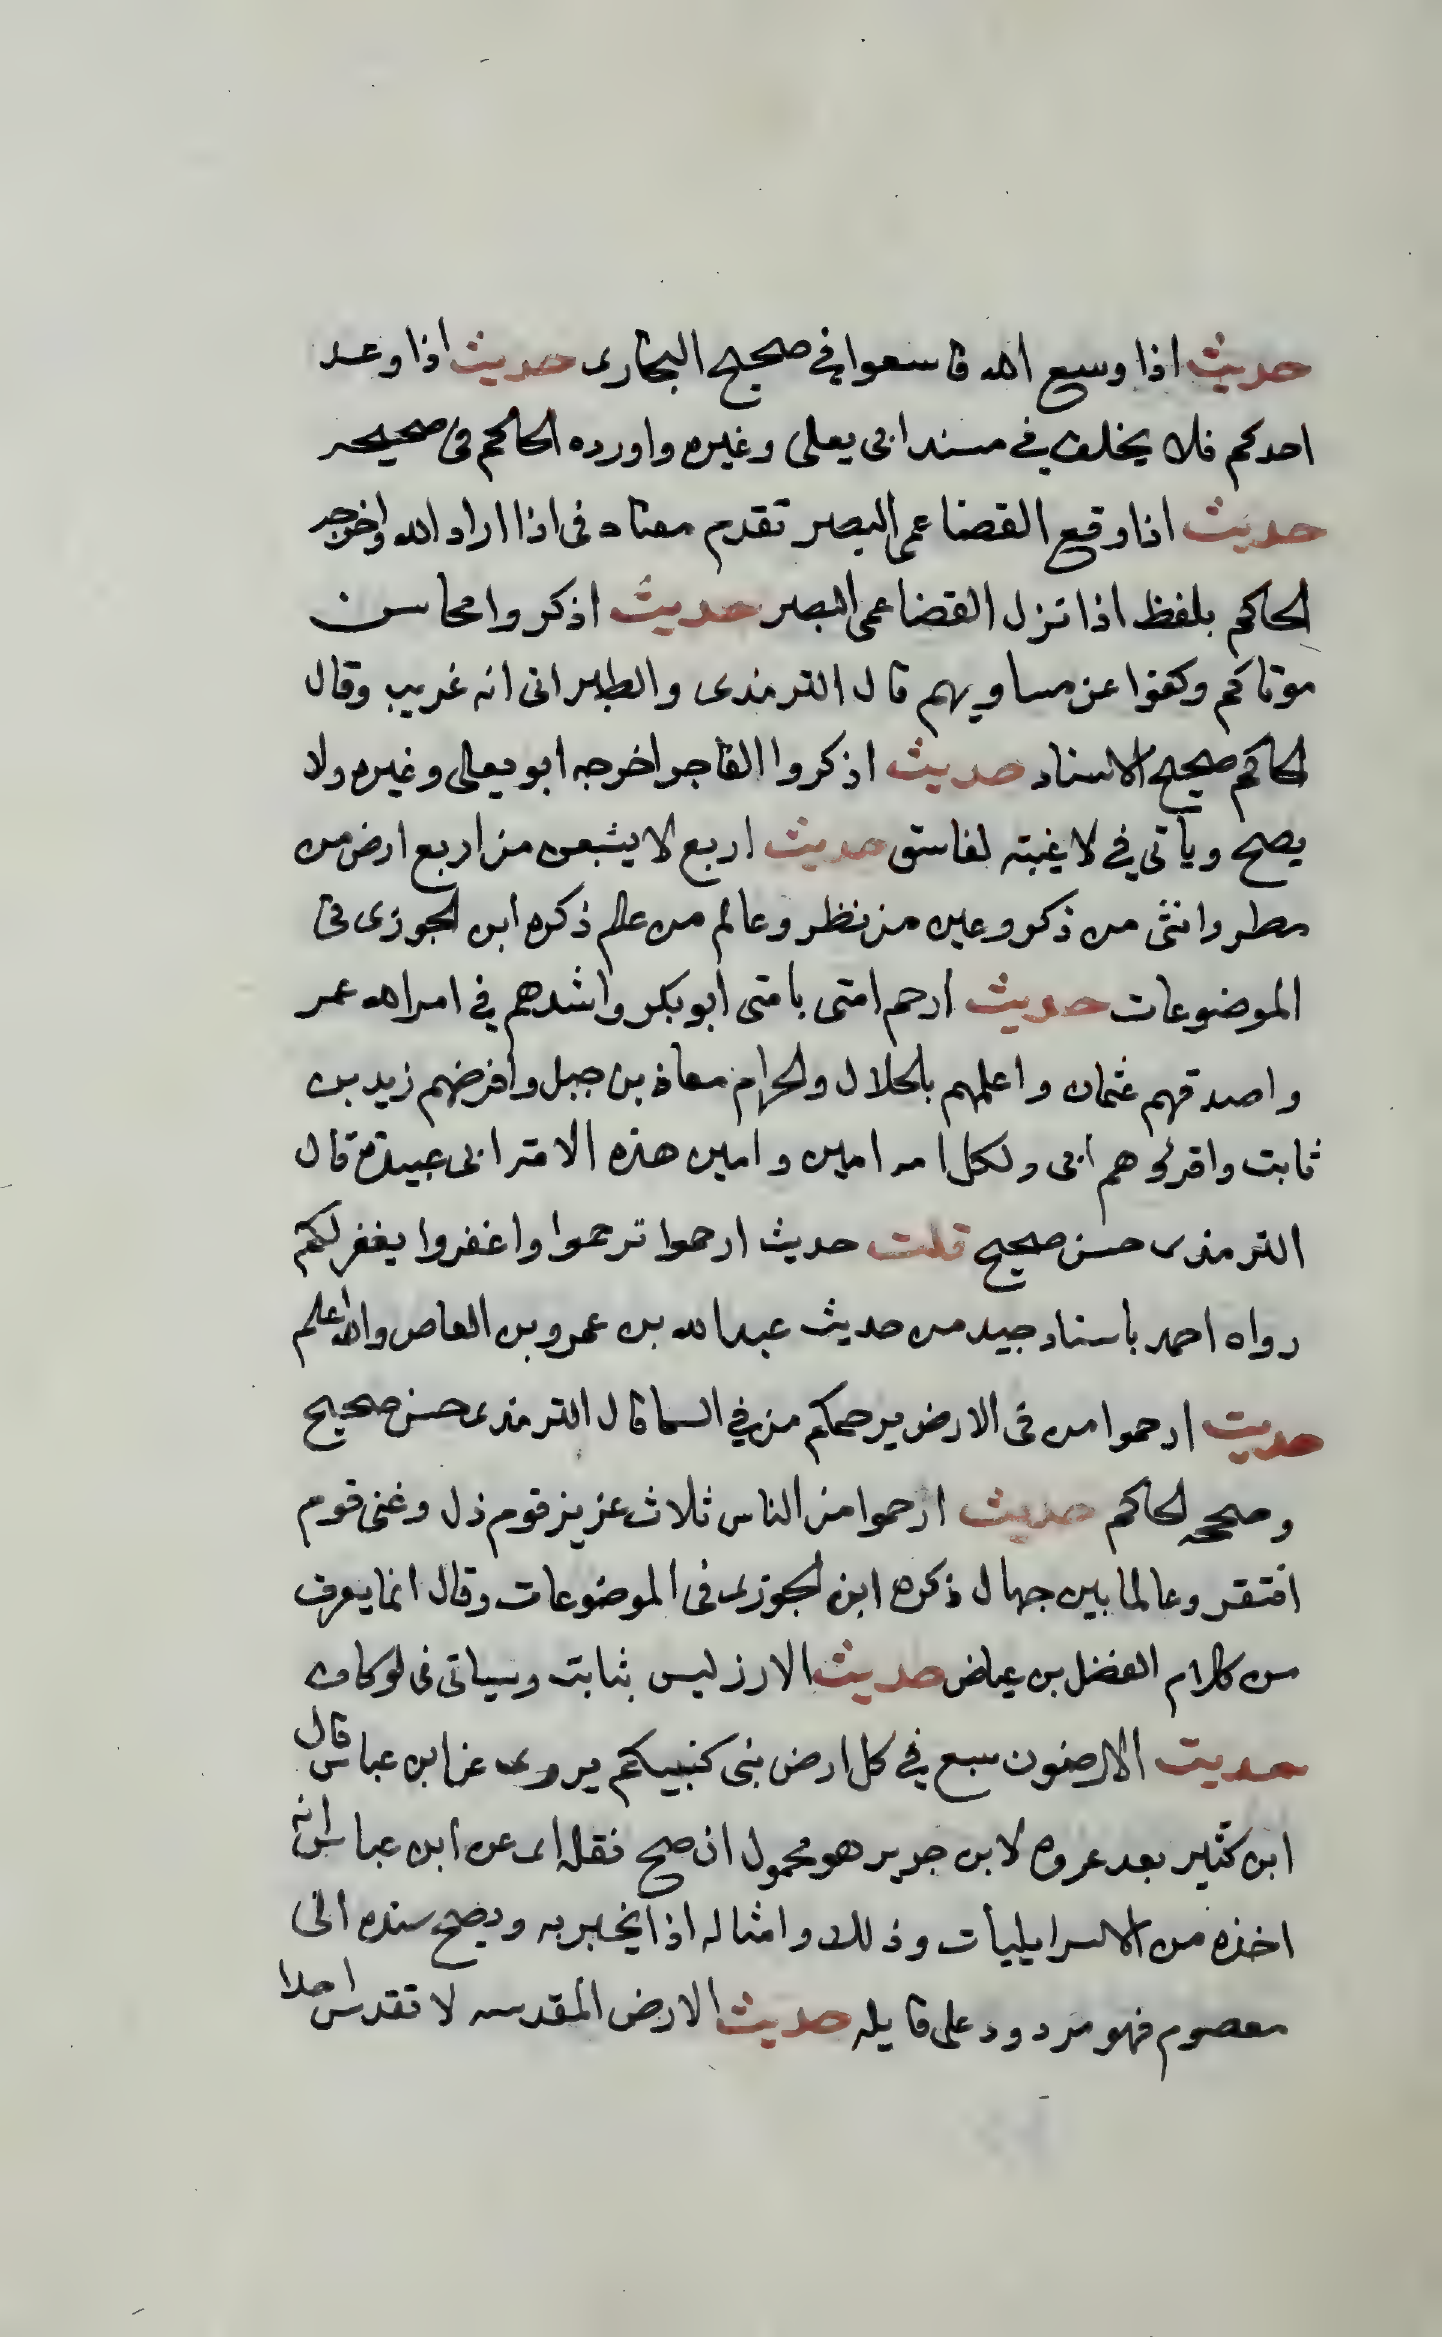 حديث اذا وسع الله فاسعوا في صحيح البخارى حديث اذا وعد
احدكم فلا يخلف في مسند ابى يعلى وغيره واورده الحاكم فى صحيحه
حديث اذا وقع القضا عمى البصر تقدم معناه فى اذا اراد الله واخرجه
الحاكم بلفظ اذا نزل القضا عمى البصر حديث اذكروا محاسن
موتاكم وكفوا عن مساويهم قال الترمذى والطبرانى انه غريب وقال
الحاكم صحيح الاسناد حديث اذكروا الفاجر اخرجه ابو يعلى وغيره ولا
يصح ويأتى في لا غيبته لفاسق حديث اربع لا يشبعن من اربع ارض من
مطر وانثى من ذكر وعين من نظر وعالم من علم ذكره ابن الجوزى فى
الموضوعات حديث ارحم امتى بامتى ابوبكر واشدهم في امر الله عمر
واصدقهم عثمان واعلمهم بالحلال والحرام معاذ بن جبل وافرضهم زيد بن
ثابت واقرؤهم ابى ولكل امه امين وامين هذه الامة ابى عبيدة قال
الترمذى حسن صحيح قلت حديث ارحموا ترحموا واغفروا يغفر لكم
رواه احمد بأسناد جيد من حديث عبدالله بن عمرو بن العاص والله اعلم
حديت ارحموا من فى الارض يرحمكم من في السما قال الترمذى حسن صحيح
وصححه الحاكم حديث ارحموا من الناس ثلاث عزيز قوم ذل وغنى قوم
افتقر وعالما بين جهال ذكره ابن الجوزى فى الموضوعات وقال انما يعرف
من كلام الفضل بن عياض حديث الارز ليس بثابت وسياتى فى لو كان
حديت الارضون سبع في كل ارض بنى كنبيكم يروى عن ابن عباس قال
ابن كثير بعد عروه لابن جرير هو محمول ان صح نقله اى عن ابن عباس انه
اخذه من الاسرايليأت وذلك وامثاله اذا لم يخبر به ويصح سنده الى
معصوم فهو مردود على قايله حديث الارض المقدسه لا تقدس احدا